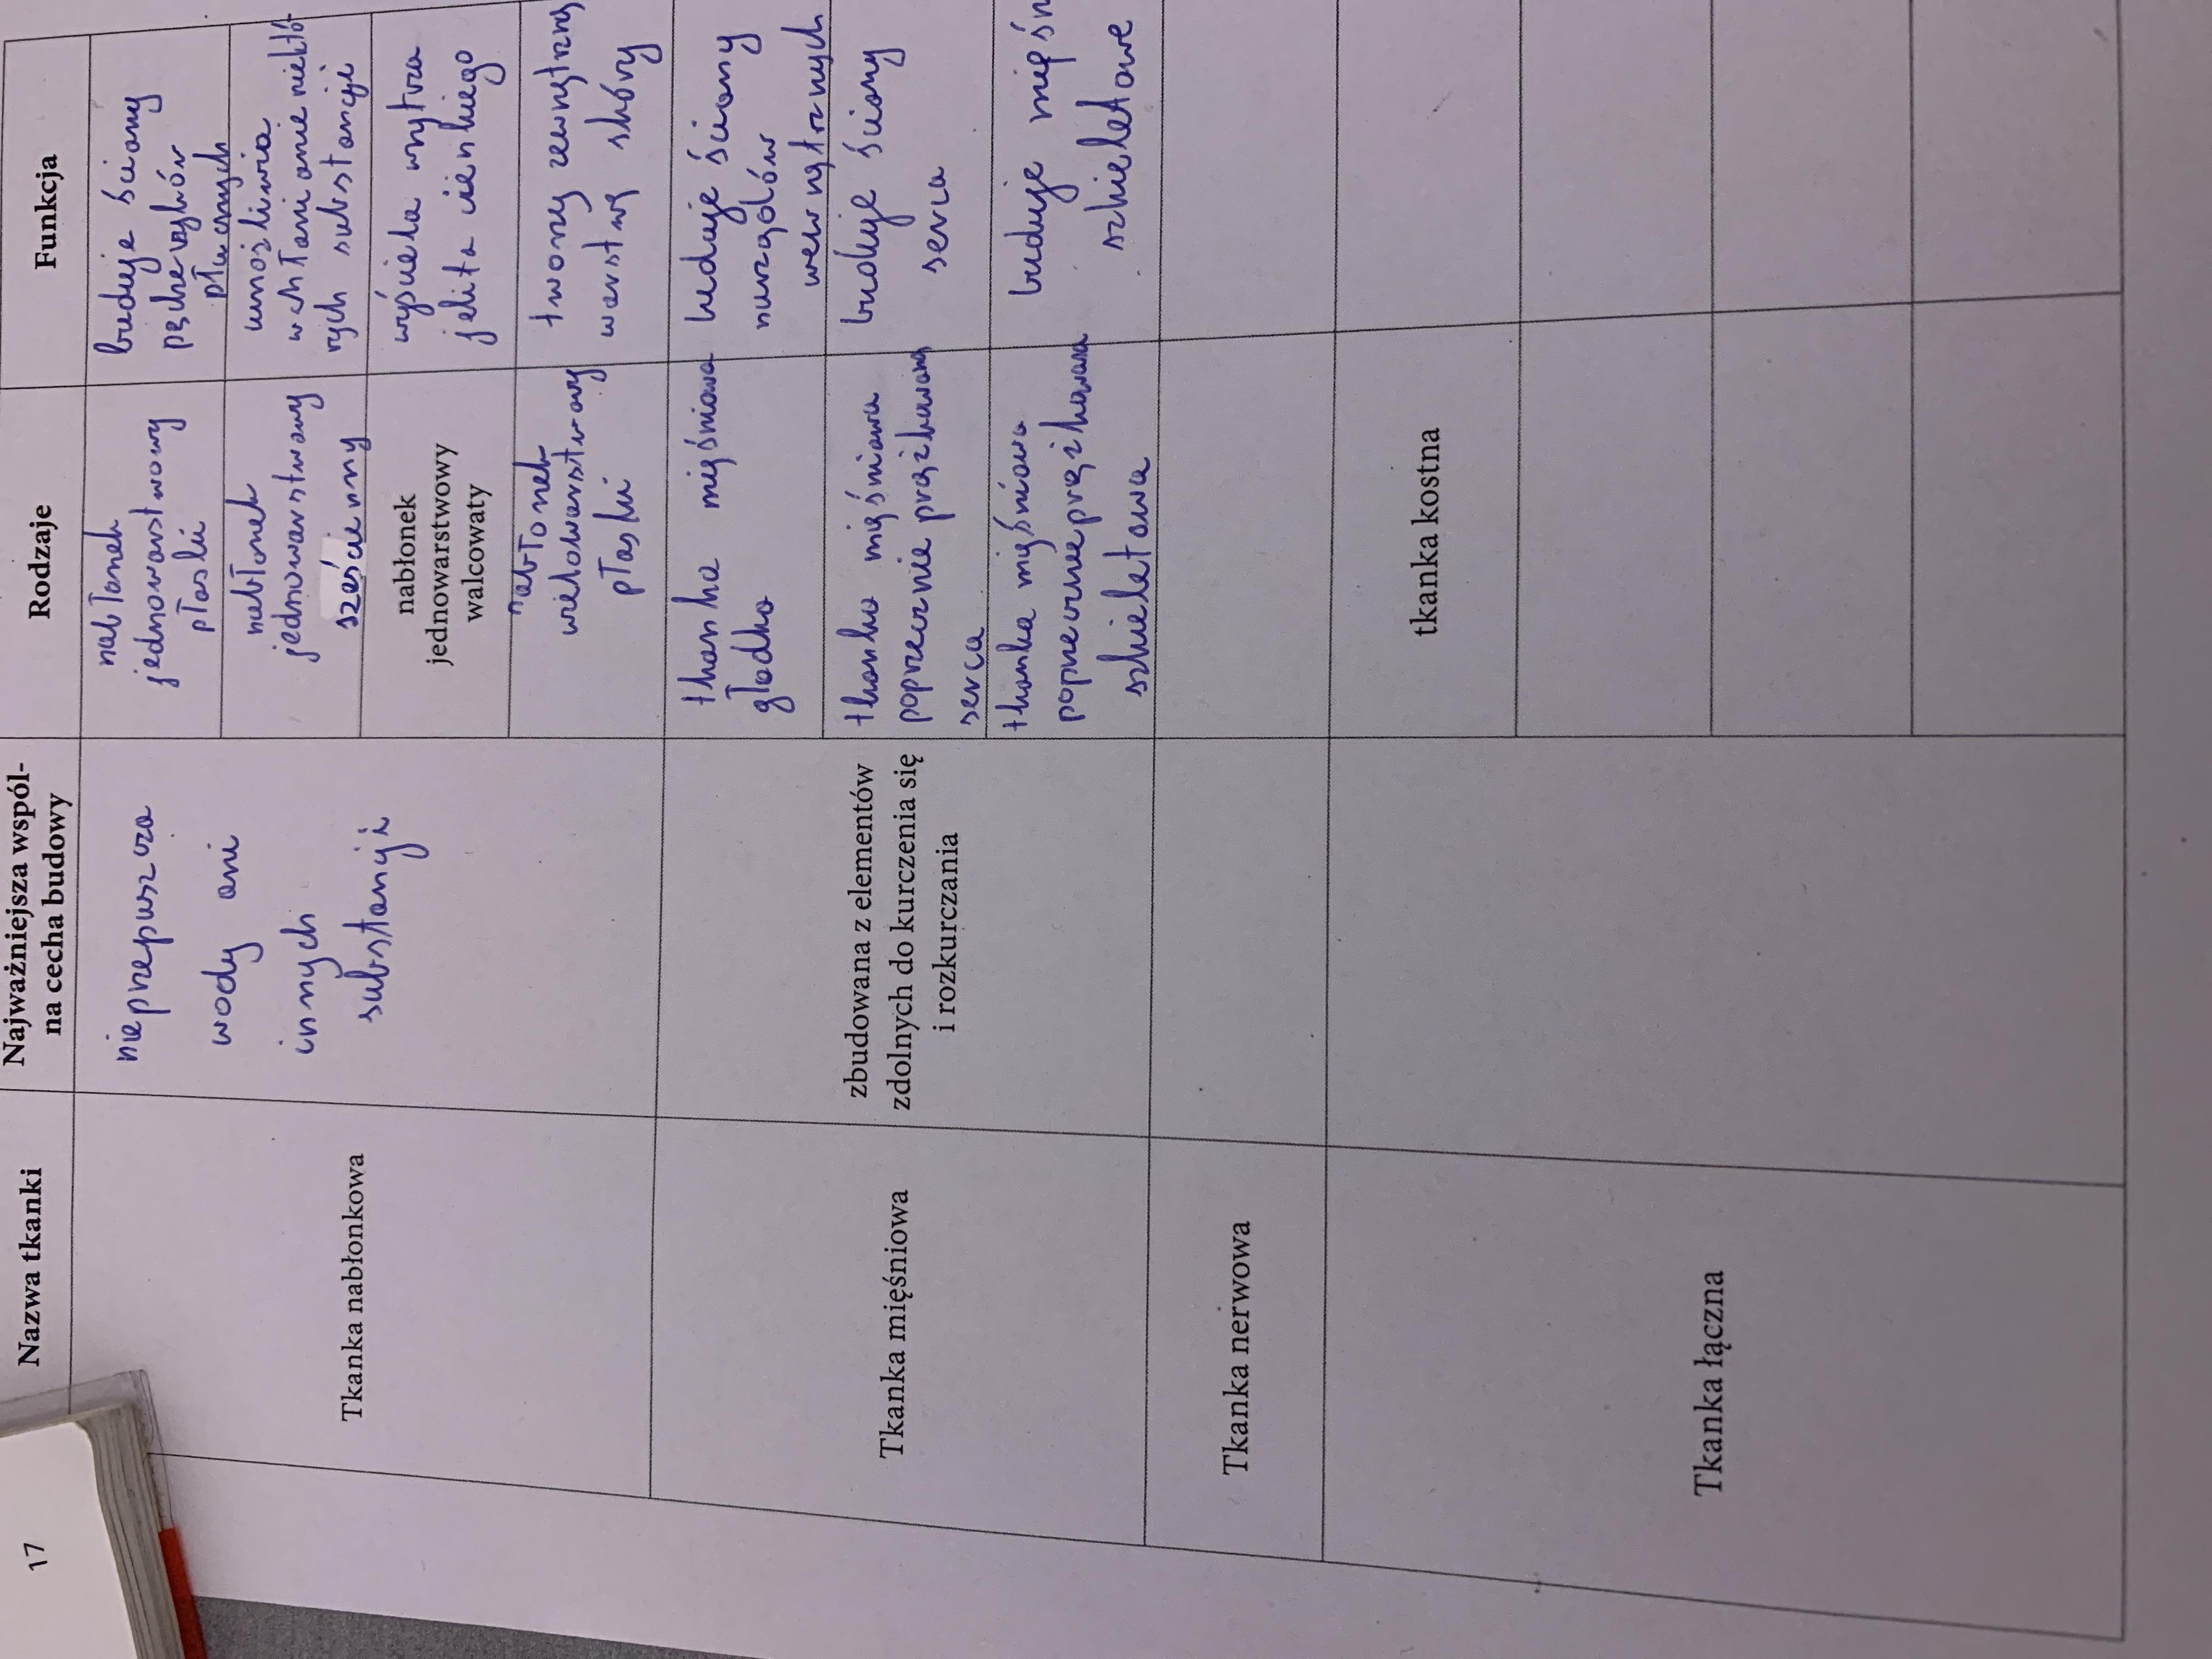 17
Nazwa tkanki
Najważniejsza wspól-
na cecha budowy
Rodzaje
Funkcja
Tkanka nabłonkowa
nieprzepuszcza
wody ani
innych
substancji
nabłonek
jednowarstwowy
płaski
buduje ściany
pęcherzyków
płucnych
nabłonek
jednowarstwowy
sześcienny
umożliwia
wchłanianie niektó-
rych substancji
nabłonek
jednowarstwowy
walcowaty
wyściela wnętrza
jelita cienkiego
nabłonek
wielowarstwowy
płaski
tworzy zewnętrzną
warstwę skóry
Tkanka mięśniowa
zbudowana z elementów
zdolnych do kurczenia się
i rozkurczania
tkanka mięśniowa
gładka
buduje ściany
narządów
wewnętrznych
tkanka mięśniowa
poprzecznie prążkowana
serca
buduje ściany
serca
tkanka mięśniowa
poprzecznie prążkowana
szkieletowa
buduje mięśn
szkieletowe
Tkanka nerwowa
Tkanka łączna
tkanka kostna